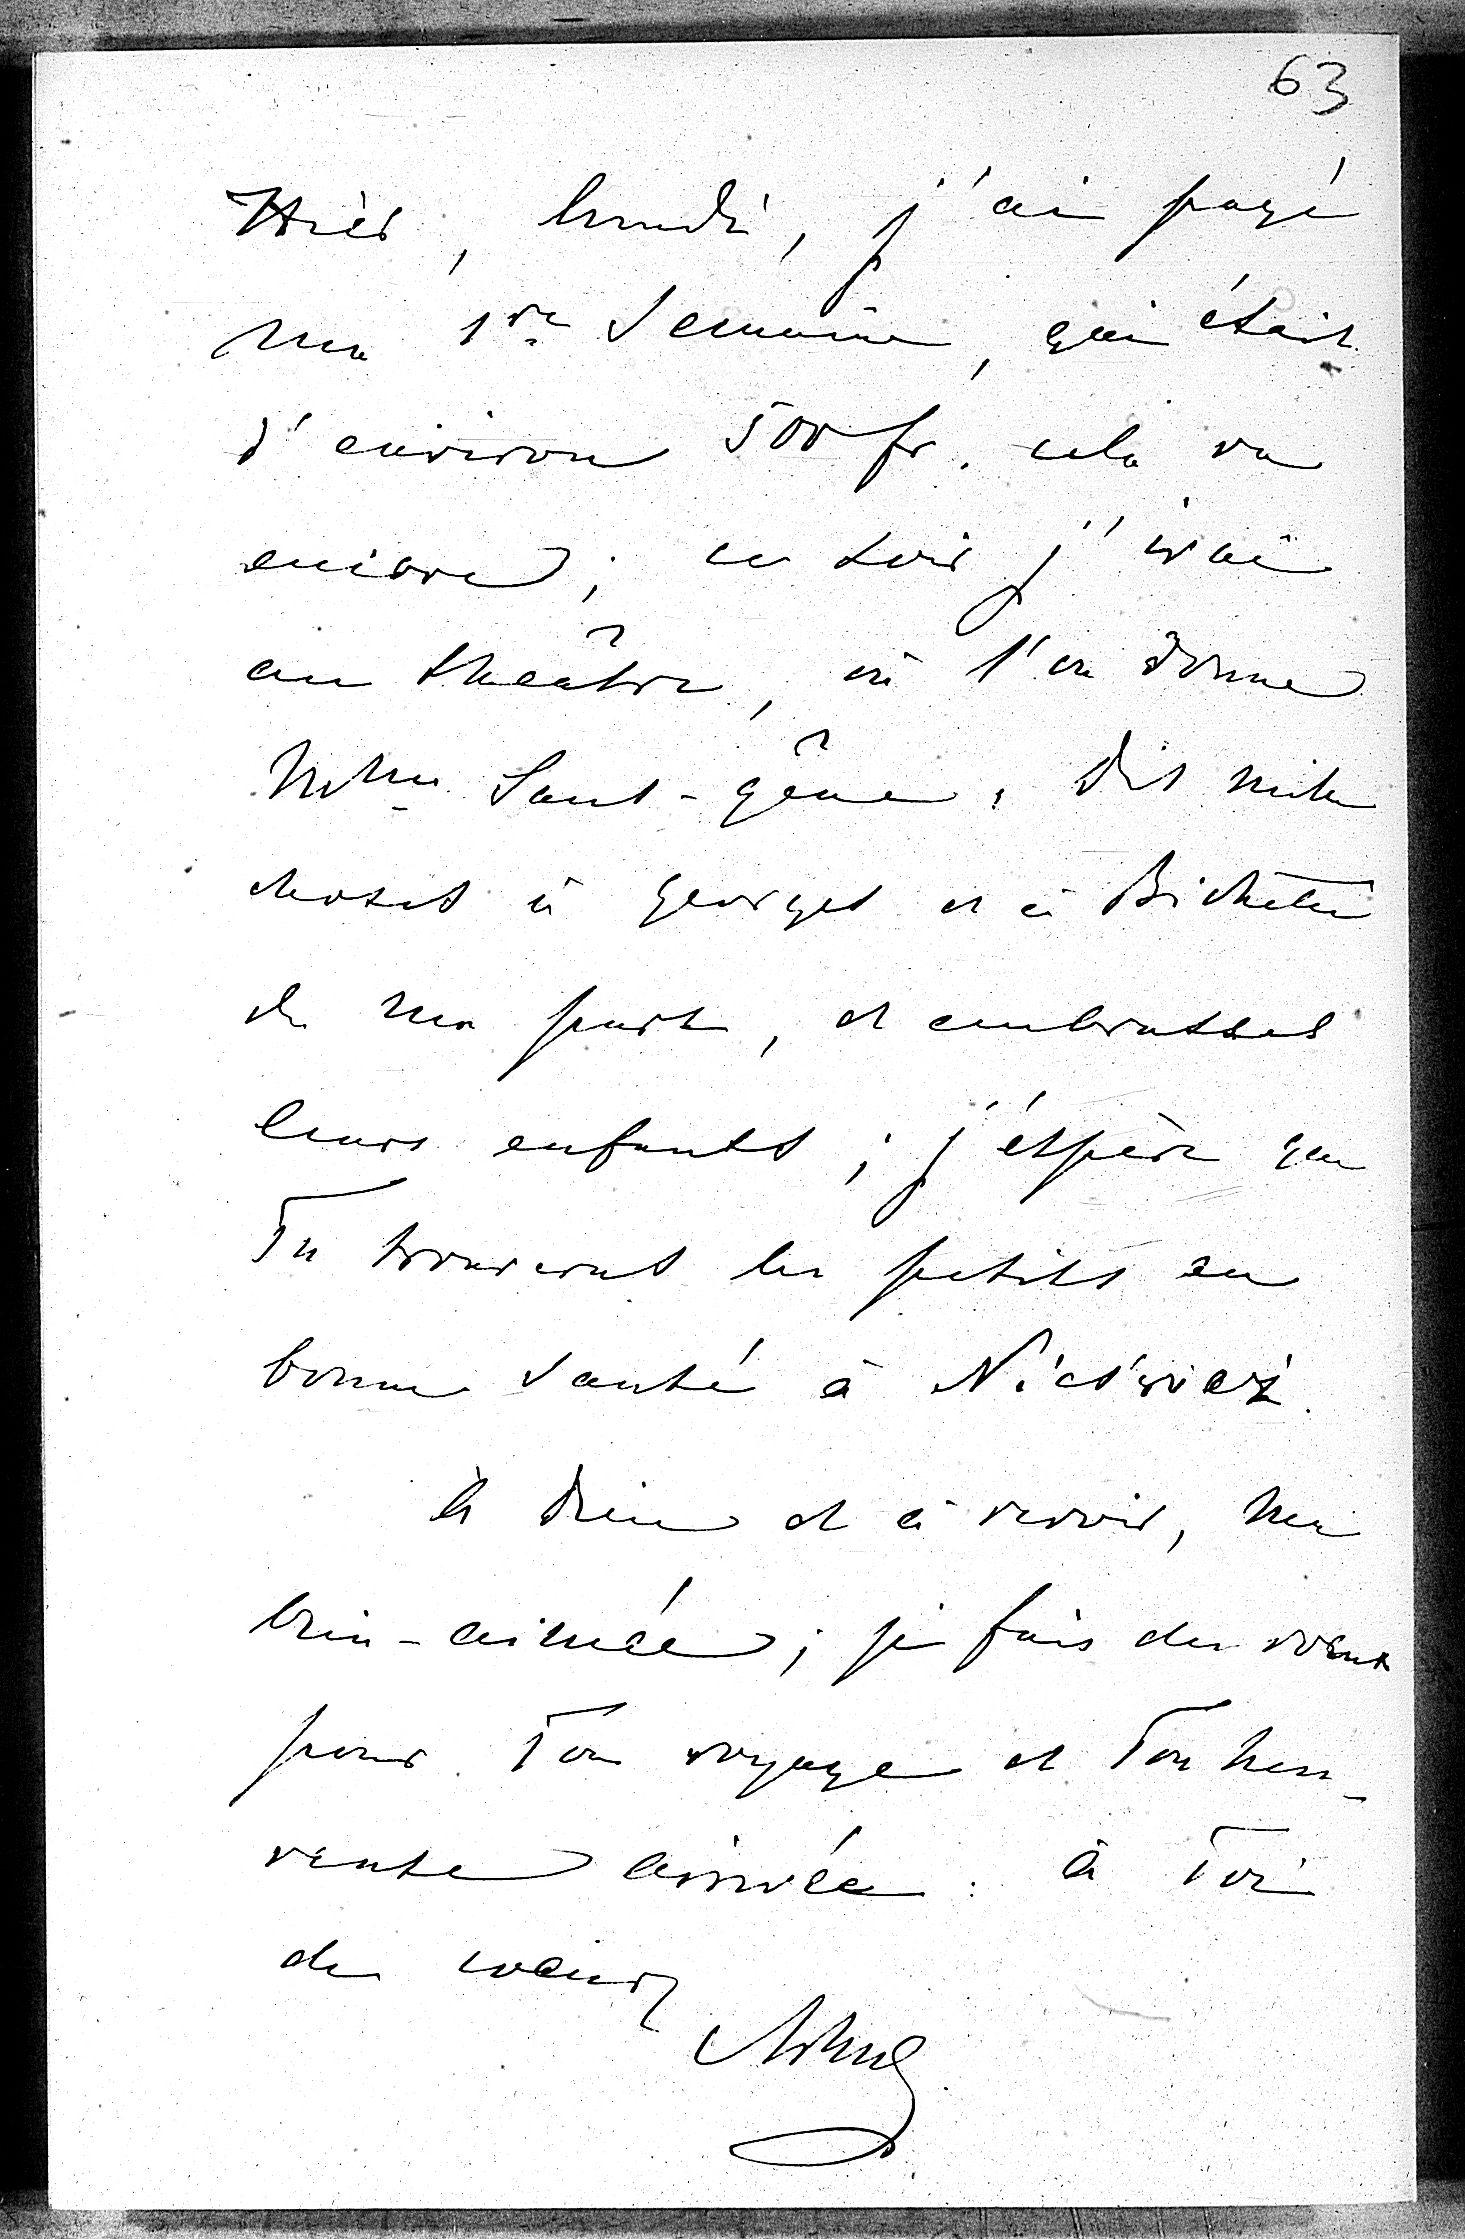 63
Hier, lundi, j'ai payé
ma 1re semaine, qui était
d'environ 500 fr. cela va
encore; ce soir j'irai
au théâtre, où l'on donne
Mme Sans-gêne. Dis mille
choses à Georges et à Bichette
de ma part, et embrasses
leurs enfants; j'éspère que
Tu trouveras les petits en
bonne santé à Nieśwież.
à Dieu et à revoir, ma
bien-aimée; je fais des vœux
pour Ton voyage et Ton heu-
reuse arrivée. à Toi
de coeur